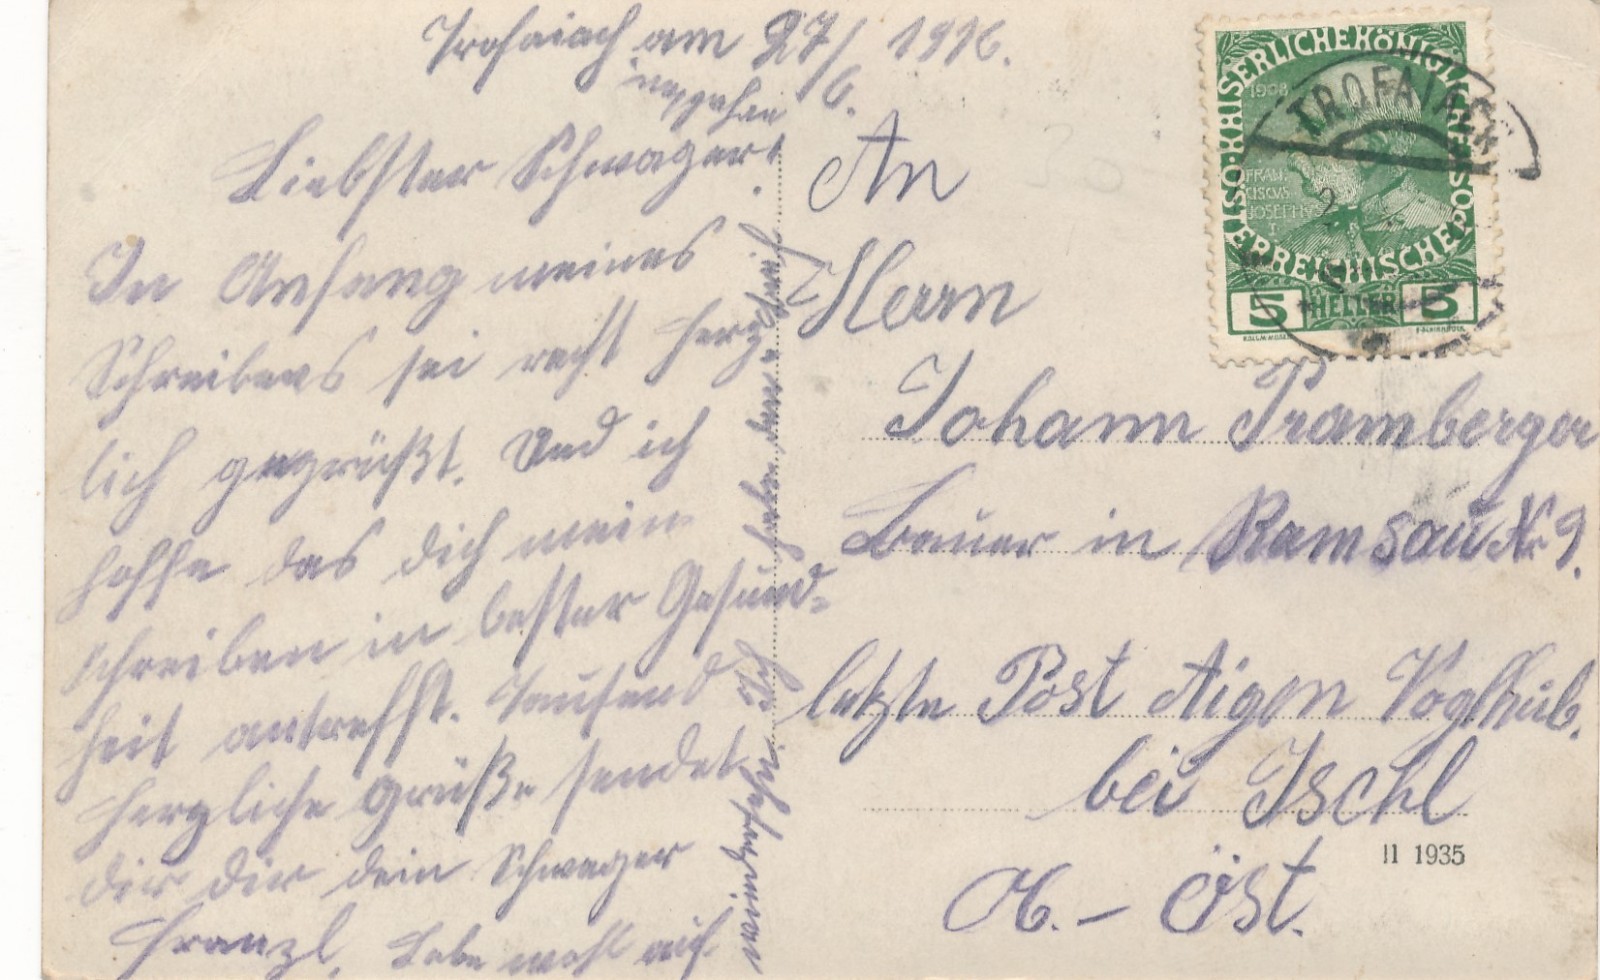 Trofaiach am 27/6. 1916.
Liebster Schwager!
In Anfang meines
Schreibens sei recht herz-
lich gegrüßt. Und ich
hoffe das dich mein
schreiben in bester Gesund-
heit antrefft. Tausend
herzliche Grüße sendet
dir dir dein Schwager
Franzl. Lebe wohl auf
wiedersehn. Ich habe den
An
Herrn
Johann Pramberger
Bauer in Ramsau Nr 9.
letzte Post Aigen Voglhub.
bei Ischl
Ob.-Öst.
II 1935
KAISERLICHE KÖNIGLICHE ÖSTERREICHISCHE POST
1908
FRAN
CISCVS
JOSEPHVS
I
5 HELLER 5
TROFAIACH